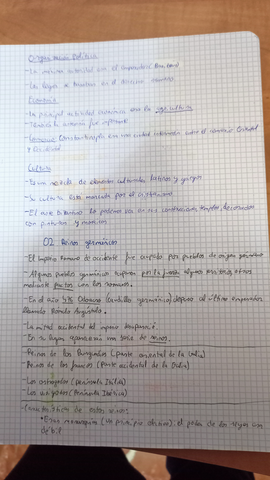 Organización Política
-La máxima autoridad era el emperador (Basileus)
-Las leyes se basaban en el derecho romano
Economía
-La principal actividad económica era la agricultura
-También artesanía fue importante
Comercio: Constantinopla era una ciudad intermedia entre el comercio Oriental
y Occidental
Cultura
-Es una mezcla de elementos culturales latinos y griegos
-Su cultura está marcada por el cristianismo
-El arte bizantino lo podemos ver en sus construcciones templos, decorados
con pinturas y mosaicos
02 Reinos germánicos
-El imperio Romano de occidente fue ocupado por pueblos de origen germánico
-Algunos pueblos germánicos ocuparon por la fuerza algunos territorios otros
mediante pactos con los romanos.
-En el año 476 Odoacro (caudillo germánico) depuso al último emperador
llamado Rómulo Augústulo.
-La mitad occidental del imperio desapareció.
-En su lugar aparecieron una serie de reinos.
-Reino de los (parte oriental de la Galia)
-Reino de los francos (Parte occidental de la Galia)
-Los ostrogodos (península Itálica)
-Los visigodos (Península Ibérica)
-Características de estos reinos:
*Eran monarquías (al principio electivas), el poder de los reyes era
débil